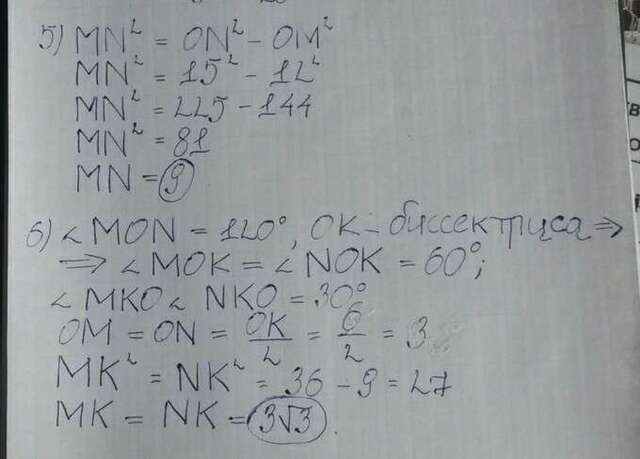 5) MN² = ON² - OM²
MN² = 15² - 12²
MN² = 225 - 144
MN² = 81
MN = 9
6) ∠MON = 120°, OK - биссектриса ⇒
⇒ ∠MOK = ∠NOK = 60°;
∠MKO ∠ NKO = 30°
OM = ON = OK/2 = 6/2 = 3
MK² = NK² = 36 - 9 = 27
MK = NK = 3√3.